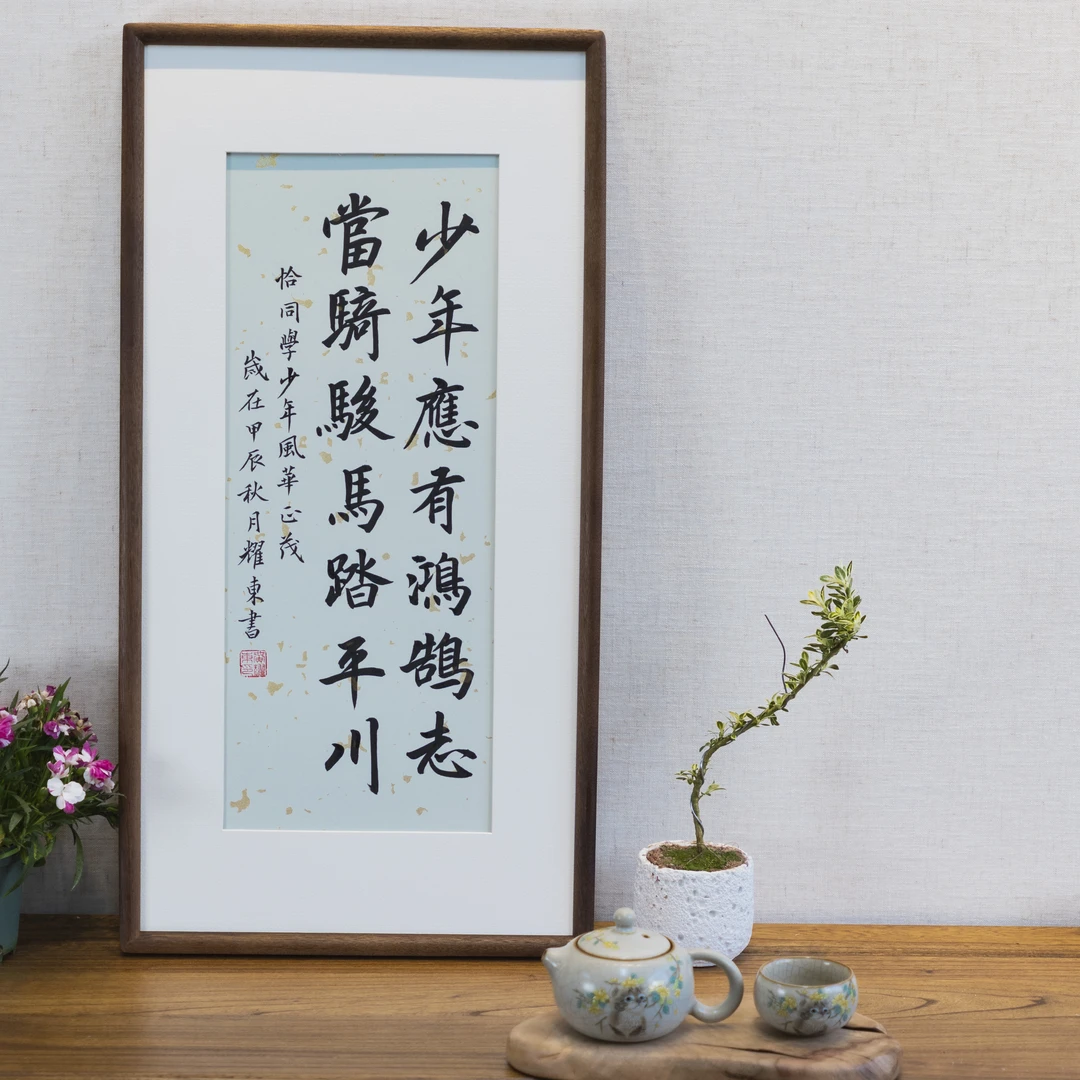 少年應有鴻鵠志
當騎駿馬踏平川
恰同學少年風華正茂
歲在甲辰秋月耀東書